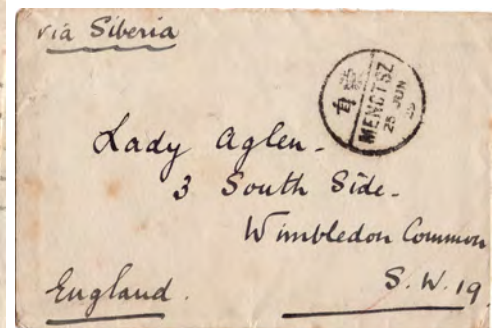 via Siberia
蒙自
MENGTSZ
25 JUN
Lady Aglen-
3 South Side-
Wimbledon Common
S.W.19.
England.